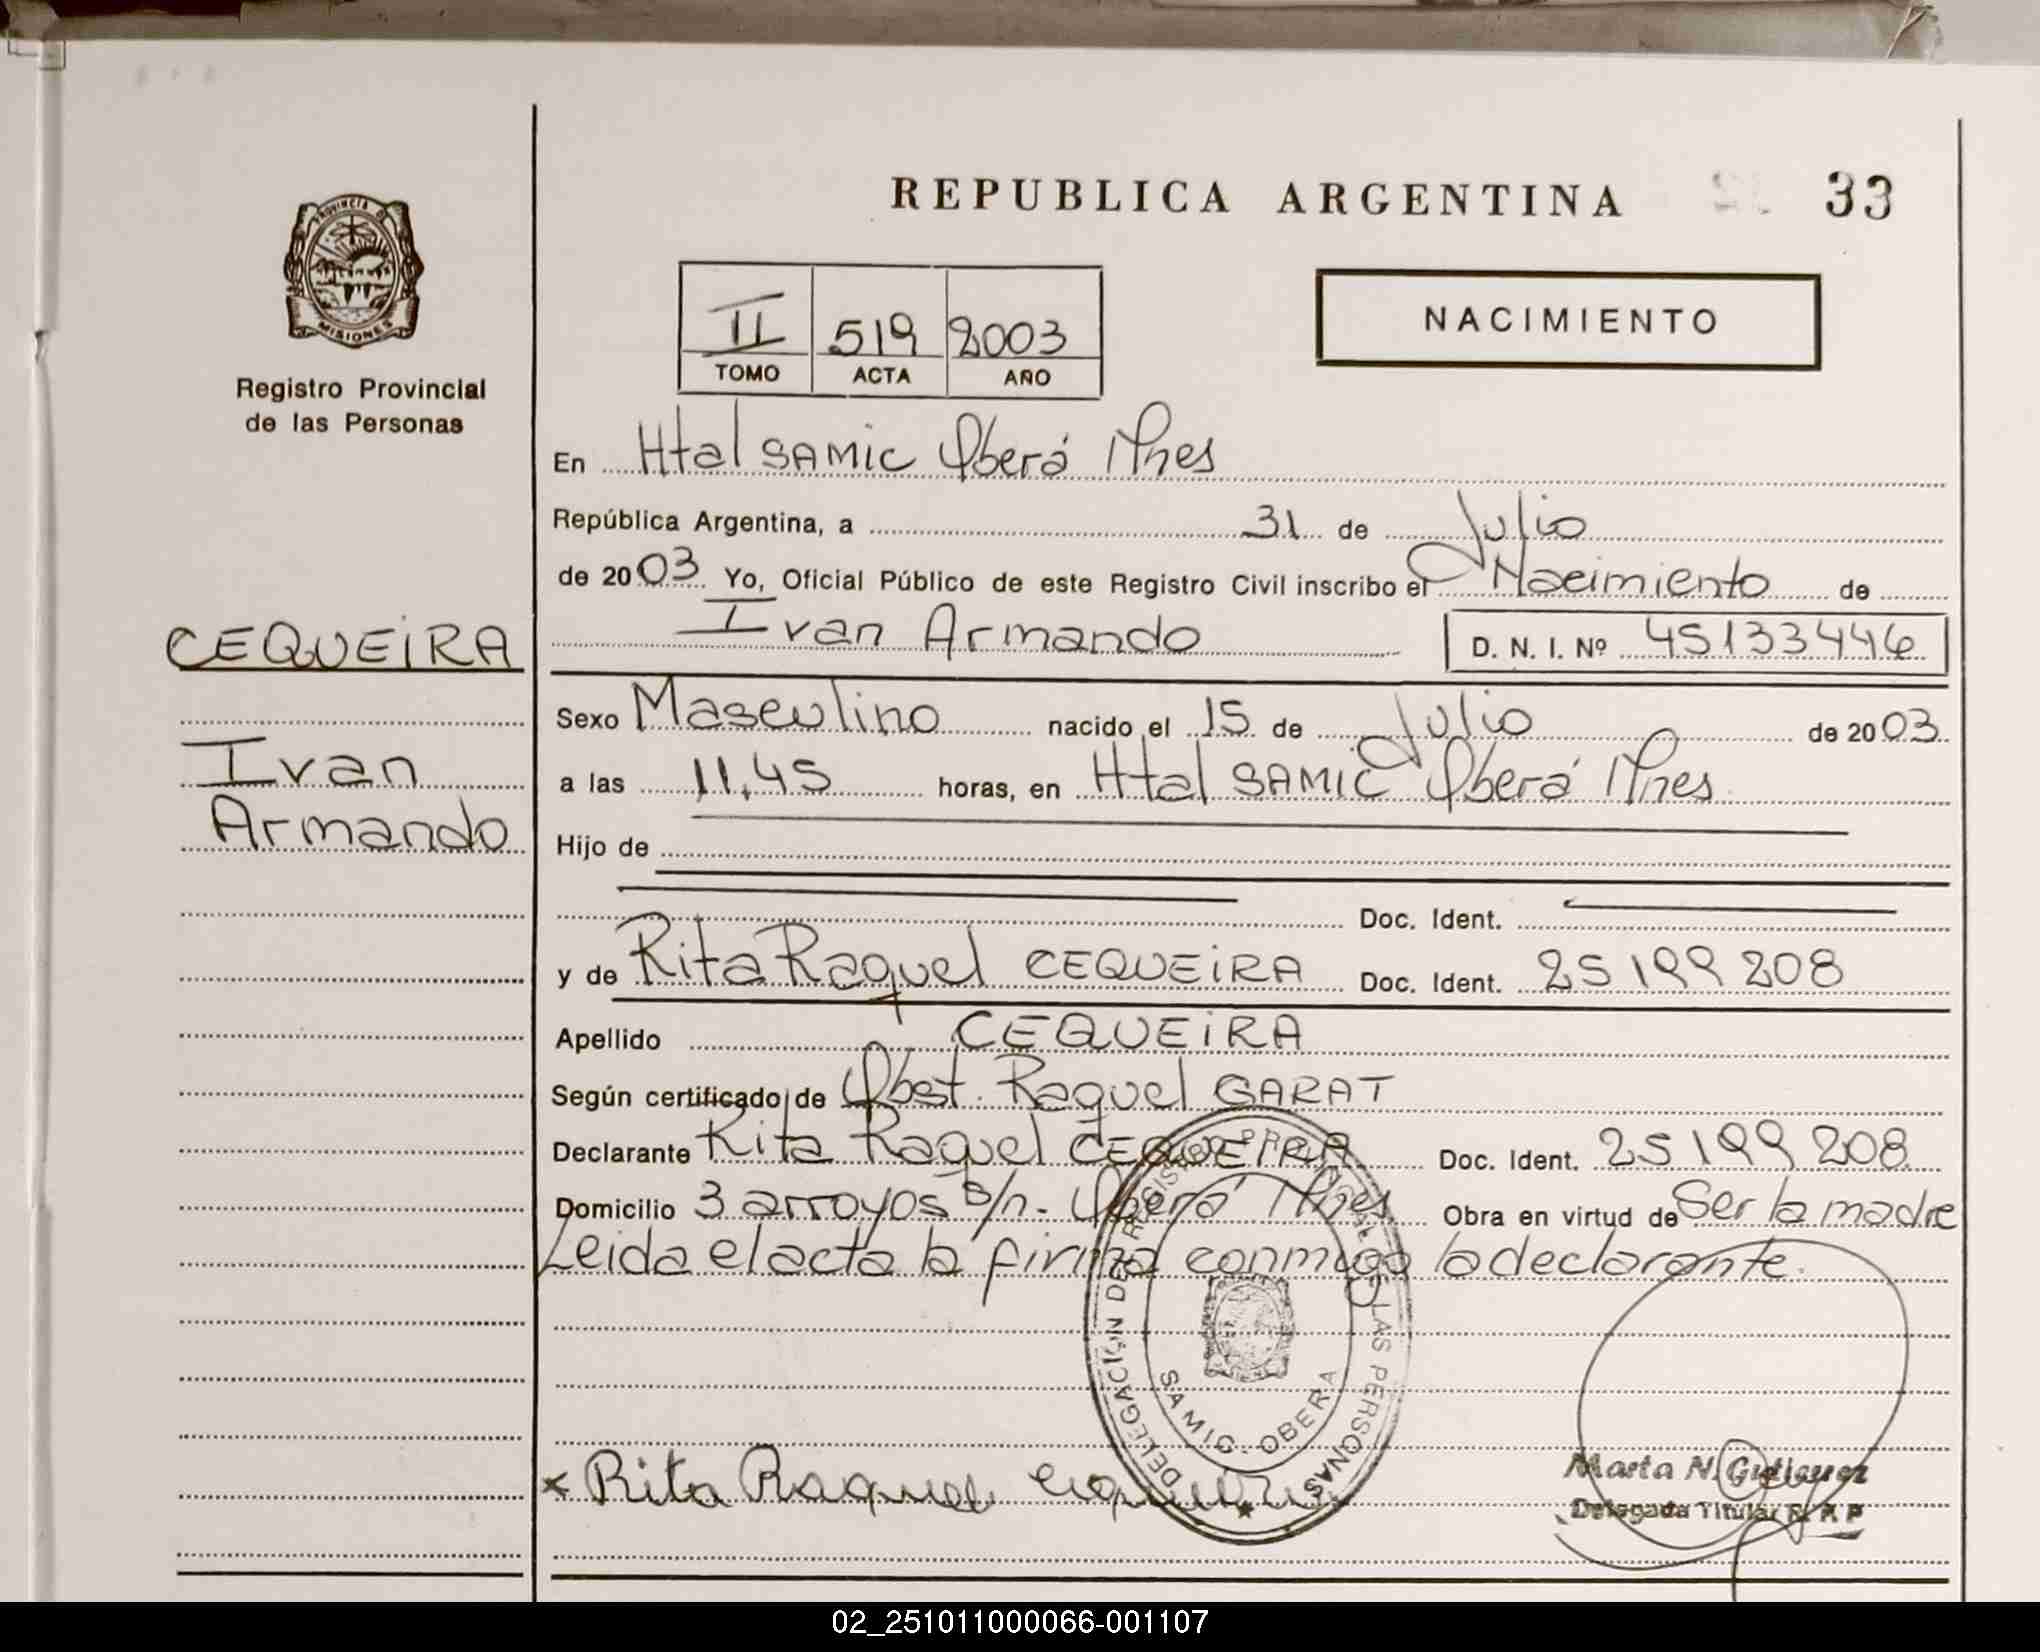 REPUBLICA ARGENTINA 33
PROVINCIA DE
MISIONES
Registro Provincial
de las Personas
II 519 2003
TOMO ACTA AÑO
NACIMIENTO
En Htal SAMIC Oberá Mnes
República Argentina, a 31 de Julio
de 2003 Yo, Oficial Público de este Registro Civil inscribo el Nacimiento de
Ivan Armando D. N. I. Nº 45133446
CEQUEIRA
Ivan
Armando
Sexo Masculino nacido el 15 de Julio de 2003
a las 11,45 horas, en Htal SAMIC Oberá Mnes
Hijo de
Doc. Ident.
y de Rita Raquel CEQUEIRA Doc. Ident. 25199208
Apellido CEQUEIRA
Según certificado de Obst. Raquel GARAT
Declarante Rita Raquel CEQUEIRA Doc. Ident. 25199208
Domicilio 3 arroyos s/n. Oberá Mnes Obra en virtud de Ser la madre
Leida el acta la firma conmigo la declarante.
DELEGACION DEL REGISTRO PROVINCIAL DE LAS PERSONAS
SAMIC - OBERA
x Rita Raquel Cequeira
Marta N. Gutierrez
Delegada Titular R. P. P
02_251011000066-001107